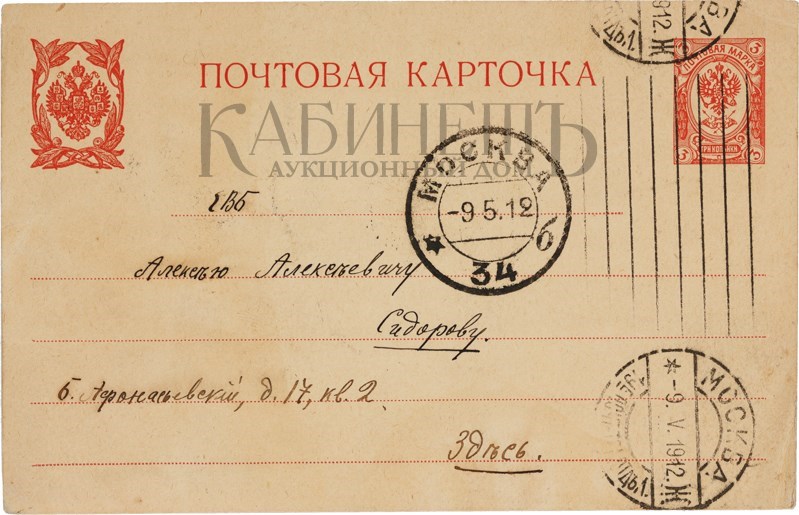 1912.Ж
ПОЧТОВАЯ МАРКА
3 3
3 ТРИ КОПѢЙКИ 3
ПОЧТОВАЯ КАРТОЧКА
КАБИНЕТЪ
АУКЦИОННЫЙ ДОМ
МОСКВА
-9.5.12
б
34
ЕВБ
Алексѣю Алексѣевичу
Сидорову.
Б. Афонасьевскій, д. 17, кв. 2.
Здѣсь.
МОСКВА
-9.V.1912.Ж